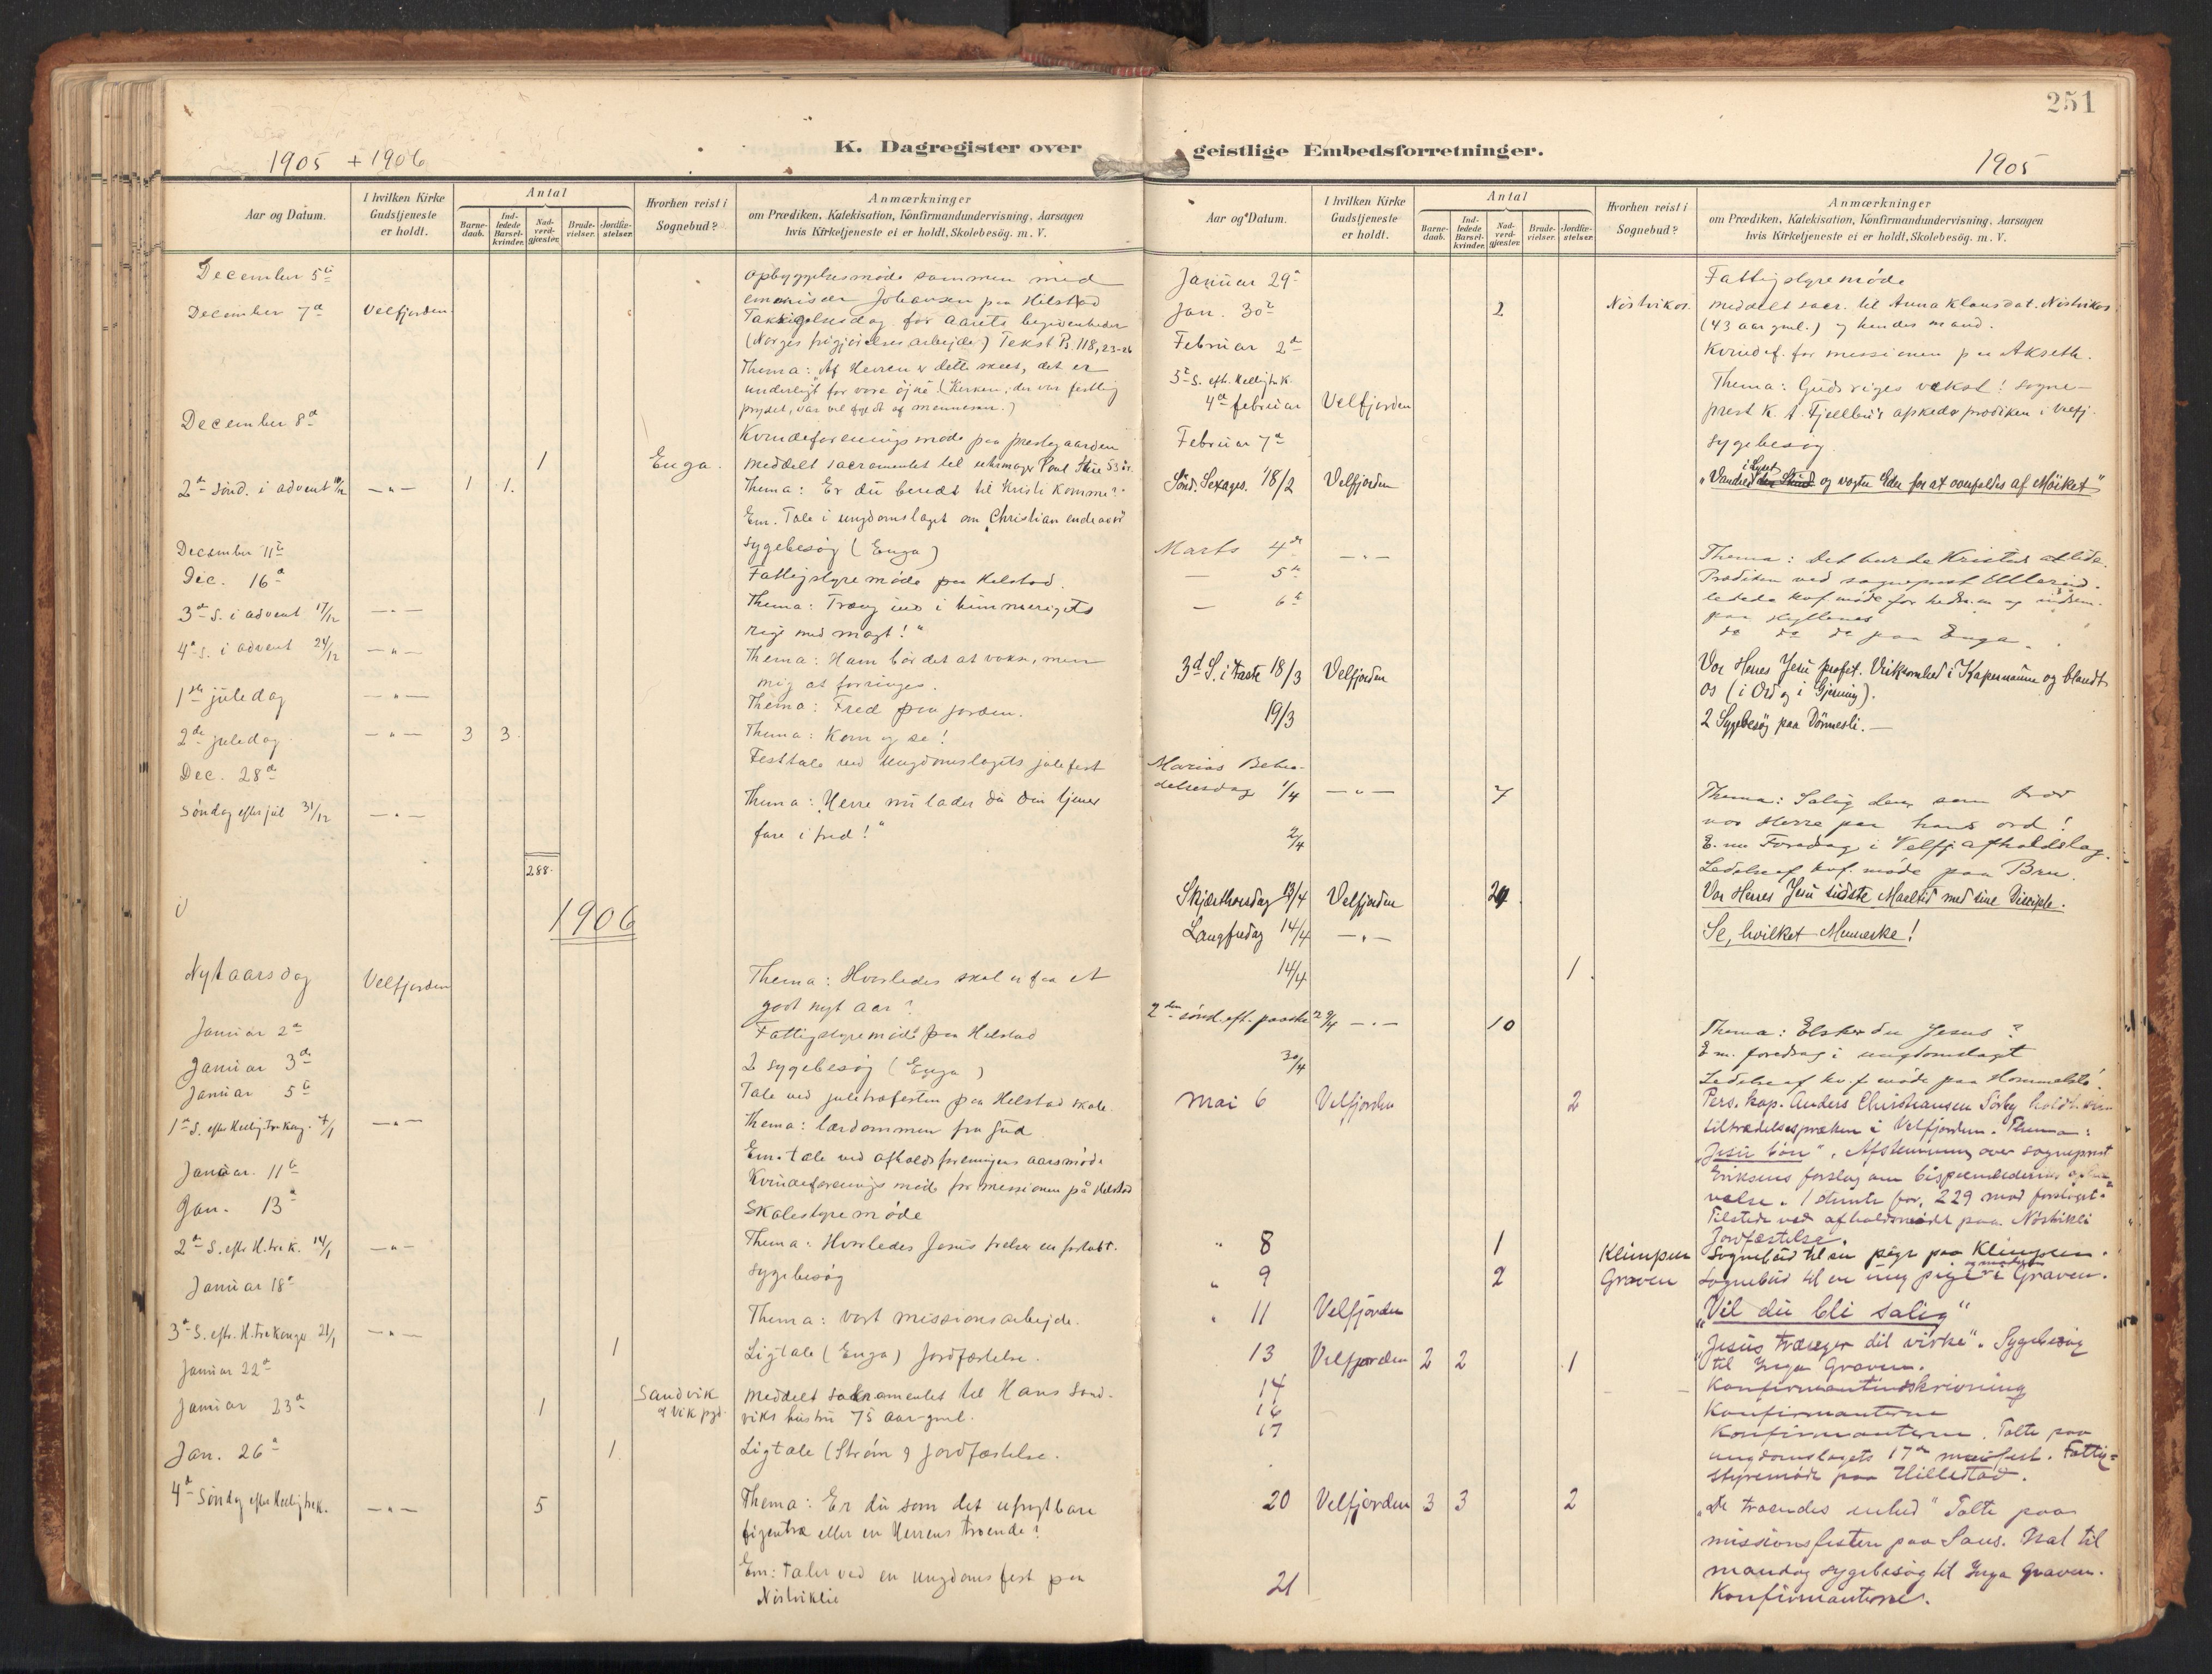 251
K. Dagregister over geistlige Embedsforretninger.
1905 + 1906
1905
Aar og Datum.
I hvilken Kirke Gudstjeneste er holdt.
Antal
Barne-daab.
Ind-ledede Barsel-kvinder.
Nad-verd-gjæster.
Brude-vielser.
Jordfæ-stelser.
Hvorhen reist i Sognebud?
Anmærkninger
om Prædiken, Katekisation, Konfirmandundervisning, Aarsagen
hvis Kirketjeneste ei er holdt, Skolebesög. m. V.
December 5te
opbyggelsesmøde sammen med
Johansen paa Helstad
December 7de Velfjorden.
Takksigelsesdag for aarets begivenheder
(Norges frigjørelsesarbejde) Tekst Ps. 118, 23-26
Thema: "Af Herren er dette skeet, det er
underligt for vore øjne (Kirken, der var festlig
prydet, var vel fyldt af mennesker.)
December 8de
Kvindeforeningsmøde paa prestegaarden
1 Enga. meddelt sacramentet til Poul 53 år.
2den Sönd. i advent 10/12 — " — 1 1. Thema: Er du beredt til Kristi komme?
Em. Tale i ungdomslaget om "Christian endeavor"
December 11te sygebesøg (Enga)
Dec. 16de Fattigstyremøde paa Helstad.
3de S. i advent 17/12 — " — Thema: Træng ind i himmeriges
rige med magt!"
4de S. i advent 24/12 — " — Thema: Ham bør det at vokse, men
mig at forringes.
1ste juledag — " — Thema: Fred paa jorden.
2den juledag — " — 3 3. Thema: Kom og se!
Dec. 28de Festtale ved Ungdomslagets julefest
Söndag efter jul 31/12 — " — Thema: "Herre nu lader du din tjener
fare i fred!"
288.
1906
Nytaarsdag Velfjorden Thema: Hvorledes skal vi faa et
godt nyt aar?
Januar 2de Fattigstyremøde paa Helstad
Januar 3de 2 sygebesøg (Enga)
Januar 5te Tale ved juletræfesten paa Helstad skole.
1ste S. efter Hellig Tre Kong. 7/1 — " — Thema: lærdommen fra Gud
Em. tale ved afholdsforeningens aarsmøde
Januar. 11te Kvindeforeningsmøde for missionen på Helstad
Jan. 13de Skolestyremøde
2den S. efter H. tre k. 14/1 — " — Thema: Hvorledes Jesus frelser en fortabt.
Januar 18de sygebesøg
3de S. eft. H. Tre konger 21/1 — " — Thema: vort missionsarbejde.
Januar 22de 1 Ligtale (Enga) Jordfæstelse.
Januar 23de 1 Sandvik meddelt sakramentet til Hans Sand-
viks hustru 75 aar gml.
Jan. 26de 1 Ligtale (Strøm) Jordfæstelse.
4de Söndag efter Hellig tre k. — " — 5 Thema: Er du som det ufrugtbare
figentræ eller en Herrens troende?
Em: taler ved en ungdomsfest paa
Nöstviklie
Aar og Datum.
I hvilken Kirke Gudstjeneste er holdt.
Antal
Barne-daab.
Ind-ledede Barsel-kvinder.
Nad-verd-gjæster.
Brude-vielser.
Jordfæ-stelser.
Hvorhen reist i Sognebud?
Anmærkninger
om Prædiken, Katekisation, Konfirmandundervisning, Aarsagen
hvis Kirketjeneste ei er holdt, Skolebesög. m. V.
Januar 29de Fattigstyremøde
Jan. 30te 2 meddelt sacr. til Anna Klausdat.
(43 aar gml.) og hendes mand.
Februar 2de Kvindef. for missionen paa Akseth.
3de S. eft. Hellig tr. K.
4de februar Velfjorden Thema: Guds riges vækst! sogne-
prest K. A. Fjellbu's afskedsprædiken i Velfj.
Februar 7de sygebesøg
Sönd. Sexages. 18/2 Velfjorden "Vandrer i Lyset og vogter Eder for at overfaldes af Mörket"
Marts 4de — " — Thema: Det burde Kristus at lide.
Prædiken ved sogneprest
— 5te ledede kvf. møde for
paa
— 6te do do do paa Enga.
3die S. i Faste 18/3 Velfjorden Vor Herres Jesu profet. Virksomhed i Kapernaum og blandt
os (i Ord og i Gjerning).
19/3 2 Sygebesøg paa Dönnesli. —
Marias Bebu-
delsesdag 1/4 — " — 7 Thema: Salig den, som tror
vor Herre paa hans ord!
E.m Foredrag i Velfj. afholdslag.
2/4 Ledelse af kvf. møde paa Bru.
Skjærthorsdag 12/4 Velfjorden 24 Vor Herres Jesu sidste Maaltid med sine Disciple.
Langfredag 14/4 — " — Se, hvilket Menneske!
14/4 1.
2den sönd. eft. paaske 29/4 — " — 10 Thema: Elsker du Jesus?
E.m. foredrag i ungdomslaget
30/4 Ledelse af kv.f. møde paa
Mai 6 Velfjorden 2 Pers. kap. Anders Christiansen holdt sin
tiltrædelsespræken i Velfjorden. Thema:
"Jesu bön". Afstemning over sogneprest
Eriksens forslag om bispeembedernes
1 stemte for, 229 mod forslaget.
Tilstede ved afholdsmöde paa Nöstvikli
Jordfæstelse.
" 8 1 Klimpen Sognebud til en pige paa Klimpen.
" 9 2 Graven Sognebud til en ung pige i Graven.
" 11 Velfjorden "Vil du bli salig"
13 Velfjorden 2 2 1 "Jesus trænger dit virke". Sygebesög
til Inga Graven.
14 Konfirmantindskrivning
16 Konfirmanterne
17 Konfirmanterne. Talte paa
ungdomslagets 17de maifest. Fattig=
styremöde paa Hillestad.
20 Velfjorden 3 3 2 "De troendes enhed" Talte paa
missionsfesten paa Saus. Nat til
mandag sygebesøg til Inga Graven.
21 Konfirmanterne.